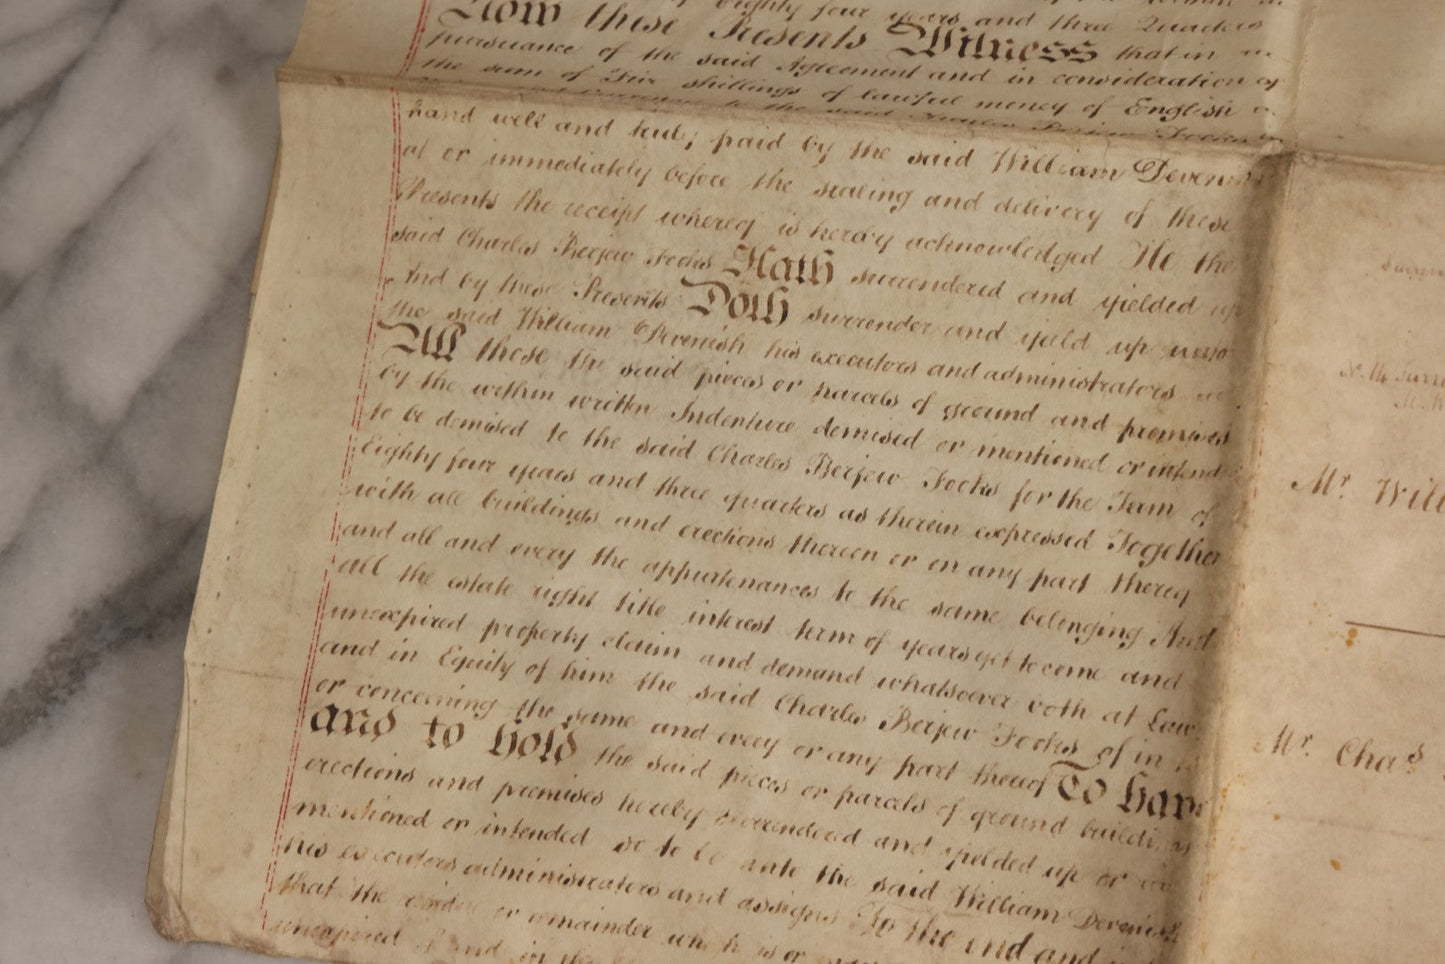 of Eighty four years and three Quarters
Now these Presents Witness that in
pursuance of the said Agreement and in consideration of
the sum of Five shillings of lawful money of English
to the said Charles Berjew Fooks in
hand well and truly paid by the said William Devenish
at or immediately before the sealing and delivery of these
Presents the receipt whereof is hereby acknowledged He the
said Charles Berjew Fooks Hath surrendered and yielded up
And by these Presents Doth surrender and yield up unto
the said William Devenish his executors and administrators
All those the said pieces or parcels of ground and premises
by the within written Indenture demised or mentioned or intended
to be demised to the said Charles Berjew Fooks for the Term of
Eighty four years and three quarters as therein expressed Together
with all buildings and erections thereon or on any part thereof
and all and every the appurtenances to the same belonging And
all the estate right title interest term of years yet to come and
unexpired property claim and demand whatsoever both at Law
and in Equity of him the said Charles Berjew Fooks of in to
or concerning the same and every or any part thereof To have
and to hold the said pieces or parcels of ground buildings
erections and premises hereby surrendered and yielded up or
mentioned or intended so to be unto the said William Devenish
his executors administrators and assigns To the end and
that the residue or remainder which is or
unexpired of and in the
Mr. Will
Mr. Chas